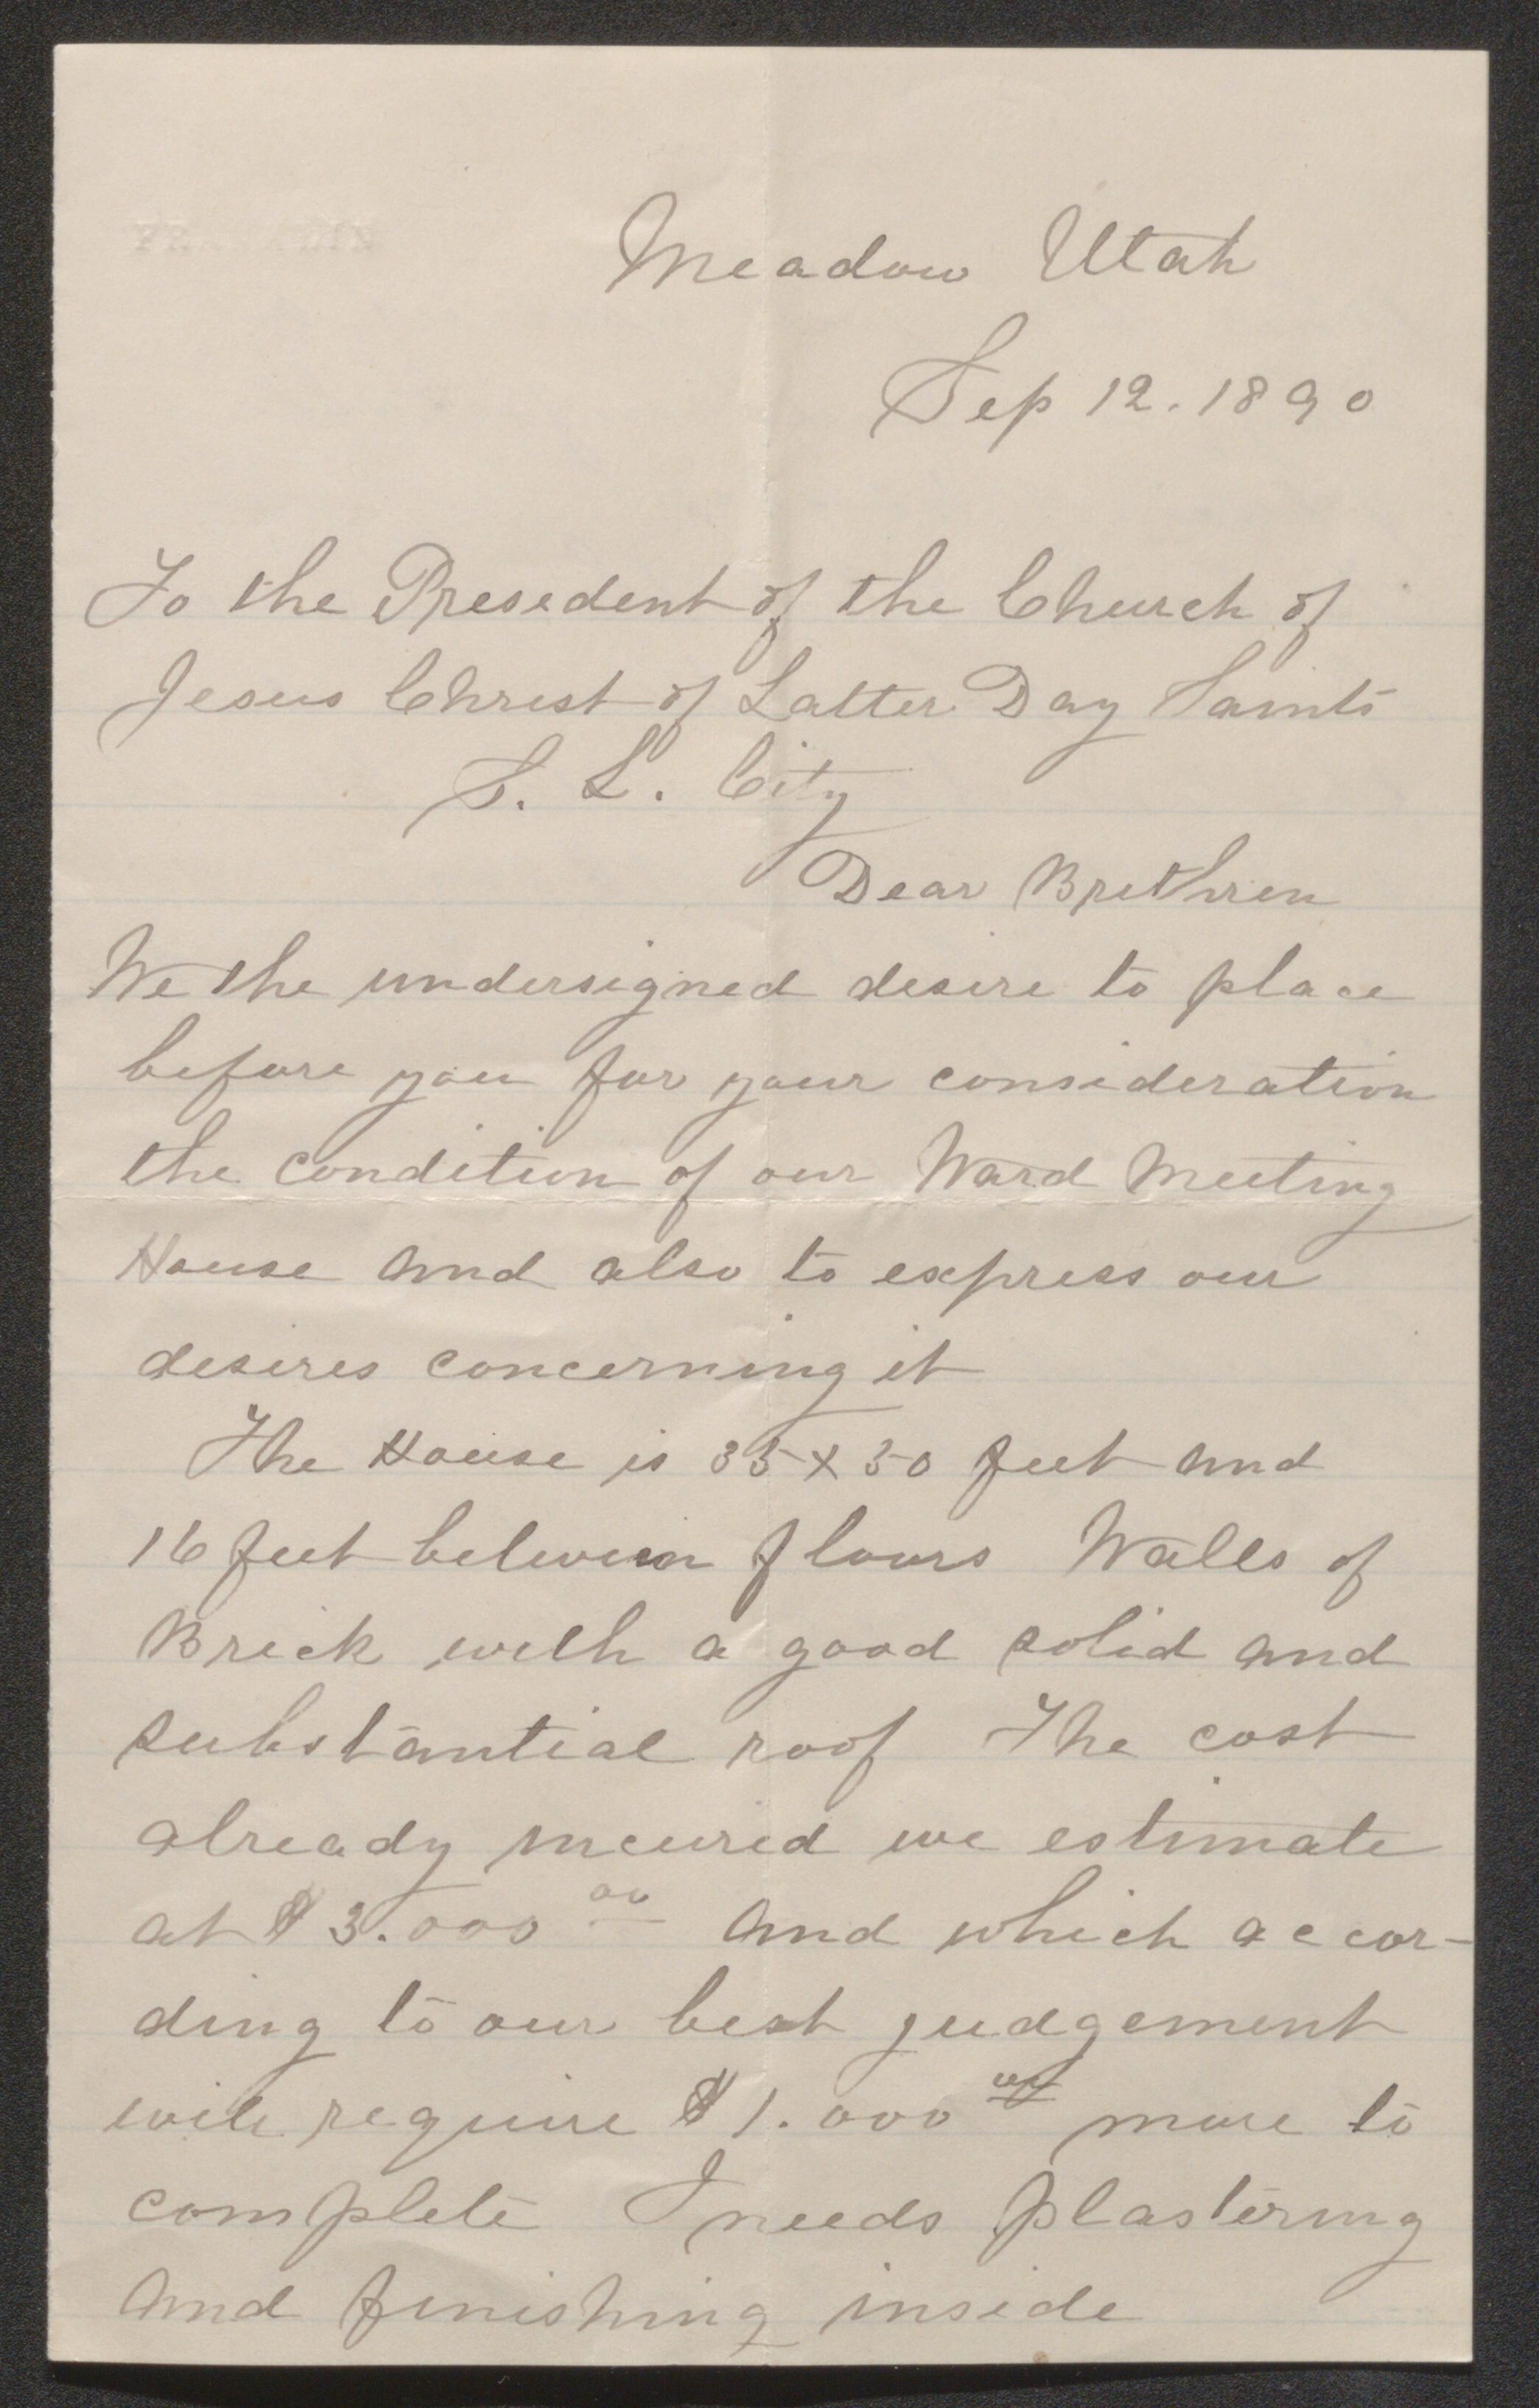 Meadow Utah
Sep 12. 1890
To the Presedent of the Church of
Jesus Christ of Latter Day Saints
S. L. City
Dear Brethren
We the undersigned desire to place
before you for your consideration
the condition of our Ward Meeting
House and also to express our
desires concerning it
The House is 35 x 50 feet and
16 feet between floors Walls of
Brick with a good solid and
substantial roof The cost
already incured we estimate
at $3.000 00 and which accor-
ding to our best judgement
will require $1.000 00 more to
complete I needs plastering
and finishing inside